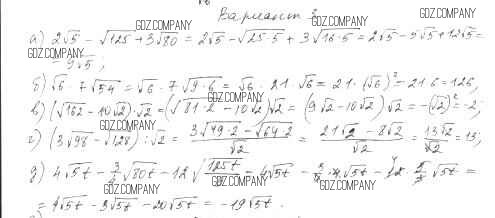 Вариант 3
а) 2√5 - √125 + 3√80 = 2√5 - √25·5 + 3√16·5 = 2√5 - 5√5 + 12√5 =
= 9√5;
б) √6 · 7√54 = √6 · 7√9·6 = √6 · 21 · √6 = 21 · (√6)² = 21·6 = 126;
в) (√162 - 10√2)·√2 = (√81·2 - 10√2)√2 = (9√2 - 10√2)√2 = -(√2)² = -2;
г) (3√98 - √128) : √2 = (3√49·2 - √64·2)/√2 = (21√2 - 8√2)/√2 = 13√2/√2 = 13;
д) 4√5t - 3/2 √80t - 12√125t = 4√5t -
= 4√5t - 3√5t - 20√5t = -19√5t.
GDZ.COMPANY
GDZ.COMPANY
GDZ.COMPANY
GDZ.COMPANY
GDZ.COMPANY
GDZ.COMPANY
GDZ.COMPANY
GDZ.COMPANY
GDZ.COMPANY
GDZ.COMPANY
GDZ.COMPANY